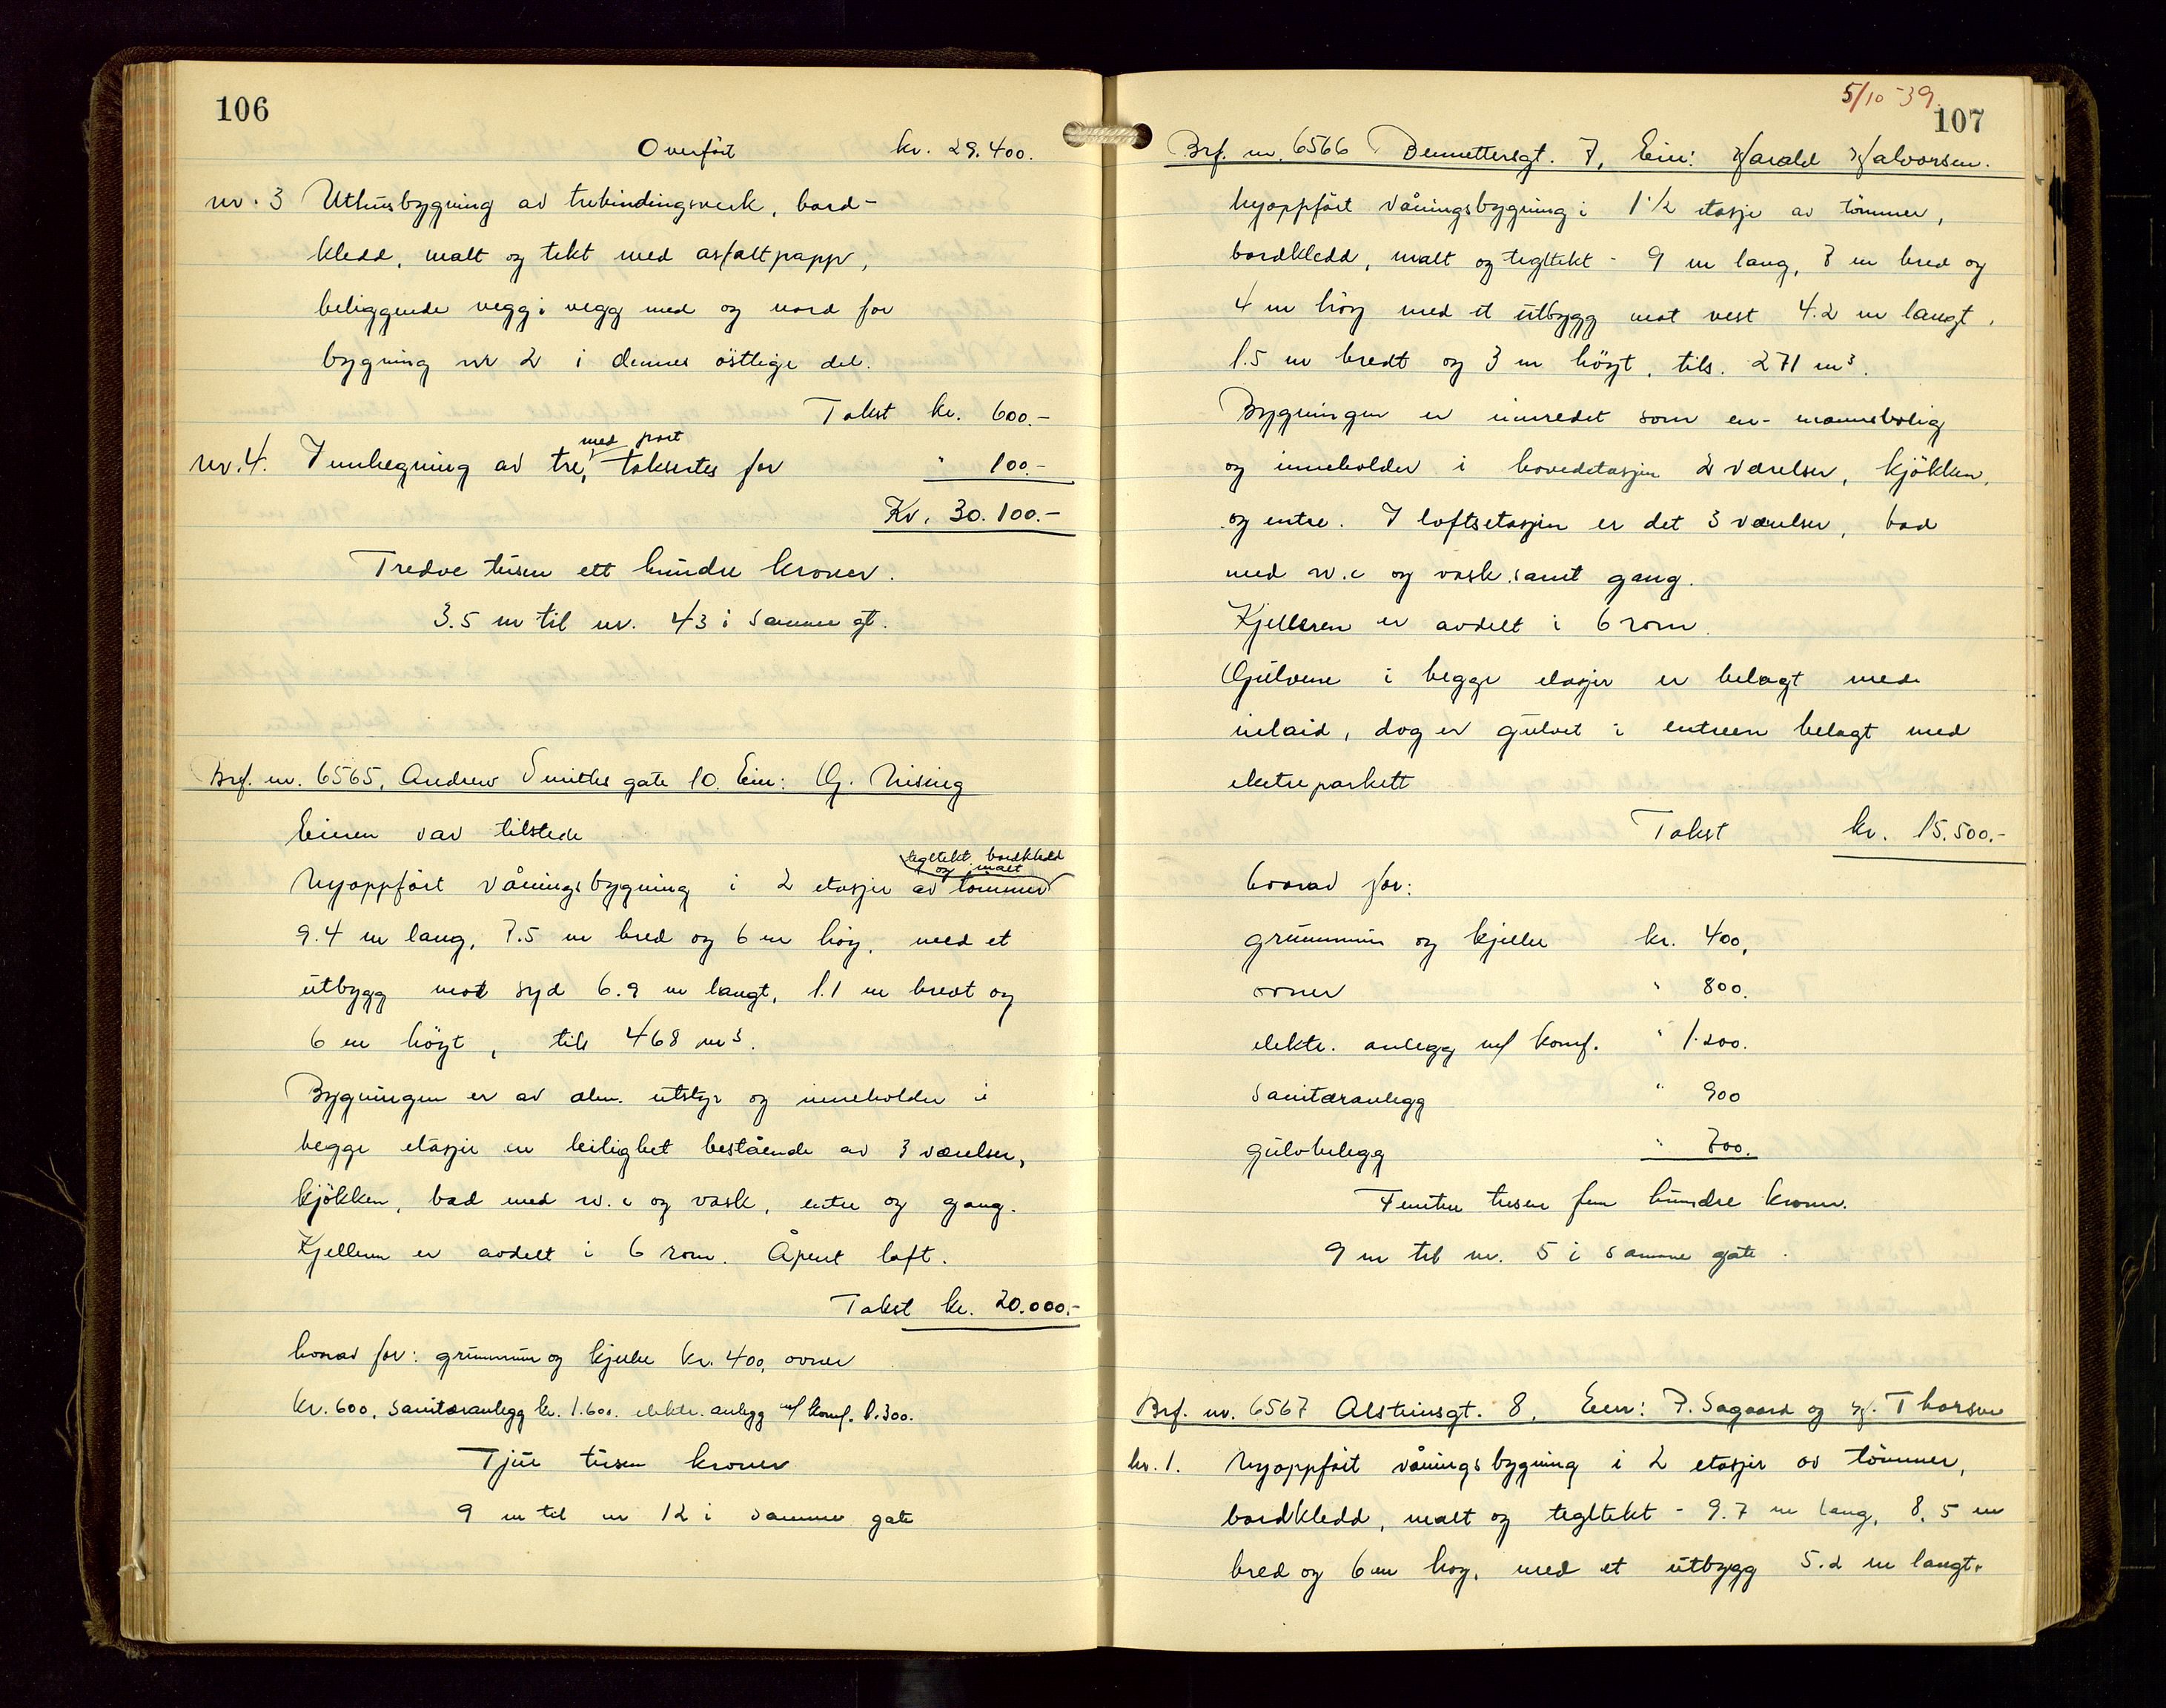 106
Overfört kr. 29.400.
nr. 3 Uthusbygning av trebindingsverk, bord-
kledd, malt og tekt med asfaltpapp,
beliggende vegg i vegg med og nord for
bygning nr 2 i dennes östlige del.
Takst kr. 600.-
med port
nr. 4. Innhegning av tre, taksertes for " 100.-
Kr. 30.100.-
Tredve tusen ett hundre kroner.
3.5 m til nr. 43 i samme gt.
Brf. nr. 6565, Andrew Smiths gate 10. Eier: G. Nising
Eieren var tilstede
tegltekt bordkledd
og malt
Nyoppfört våningsbygning i 2 etasjer av tömmer
9.4 m lang, 7.5 m bred og 6 m höy, med et
utbygg mot syd 6.9 m langt, 1.1 m bredt og
6 m höyt, tils 468 m³.
Bygningen er av alm. utstyr og inneholder i
begge etasjer en leilighet bestående av 3 værelser,
kjökken, bad med w.c og vask, entre og gang.
Kjelleren er avdelt i 6 rom. Åpent loft.
Takst kr. 20.000.-
hvorav for: grunnmur og kjeller kr. 400, ovner
kr. 600, sanitæranlegg kr. 1.600. elektr. anlegg m/ komf. 1.300.
Tjue tusen kroner
9 m til nr 12 i samme gate
5/10-39
107
Brf. nr. 6566 Bennettersgt. 7, Eier: Harald Halvorsen.
Nyoppfört våningsbygning i 1 1/2 etasje av tömmer,
bordkledd, malt og tegltekt - 9 m lang, 7 m bred og
4 m höy med et utbygg mot vest 4.2 m langt,
1.5 m bredt og 3 m höyt, tils. 271 m³.
Bygningen er innredet som en-mannsbolig
og inneholder i hovedetasjen 2 værelser, kjökken,
og entre. I loftsetasjen er det 3 værelser, bad
med w.c og vask samt gang.
Kjelleren er avdelt i 6 rom.
Gulvene i begge etasjer er belagt med
inlaid, dog er gulvet i entreen belagt med
eketreparkett
Takst kr. 15.500.-
hvorav for:
grunnmur og kjeller kr. 400,
ovner " 800.
elektr. anlegg m/ komf. " 1.200.
Sanitæranlegg " 900
gulvbelegg " 700.
Femten tusen fem hundre kroner.
9 m til nr. 5 i samme gate.
Brf. nr. 6567 Alsteinsgt. 8, Eier: P. Sagaard og H. Thorsen
nr. 1. Nyoppfört våningsbygning i 2 etasjer av tömmer,
bordkledd, malt og tegltekt - 9.7 m lang, 8.5 m
bred og 6 m höy, med et utbygg 5.2 m langt,